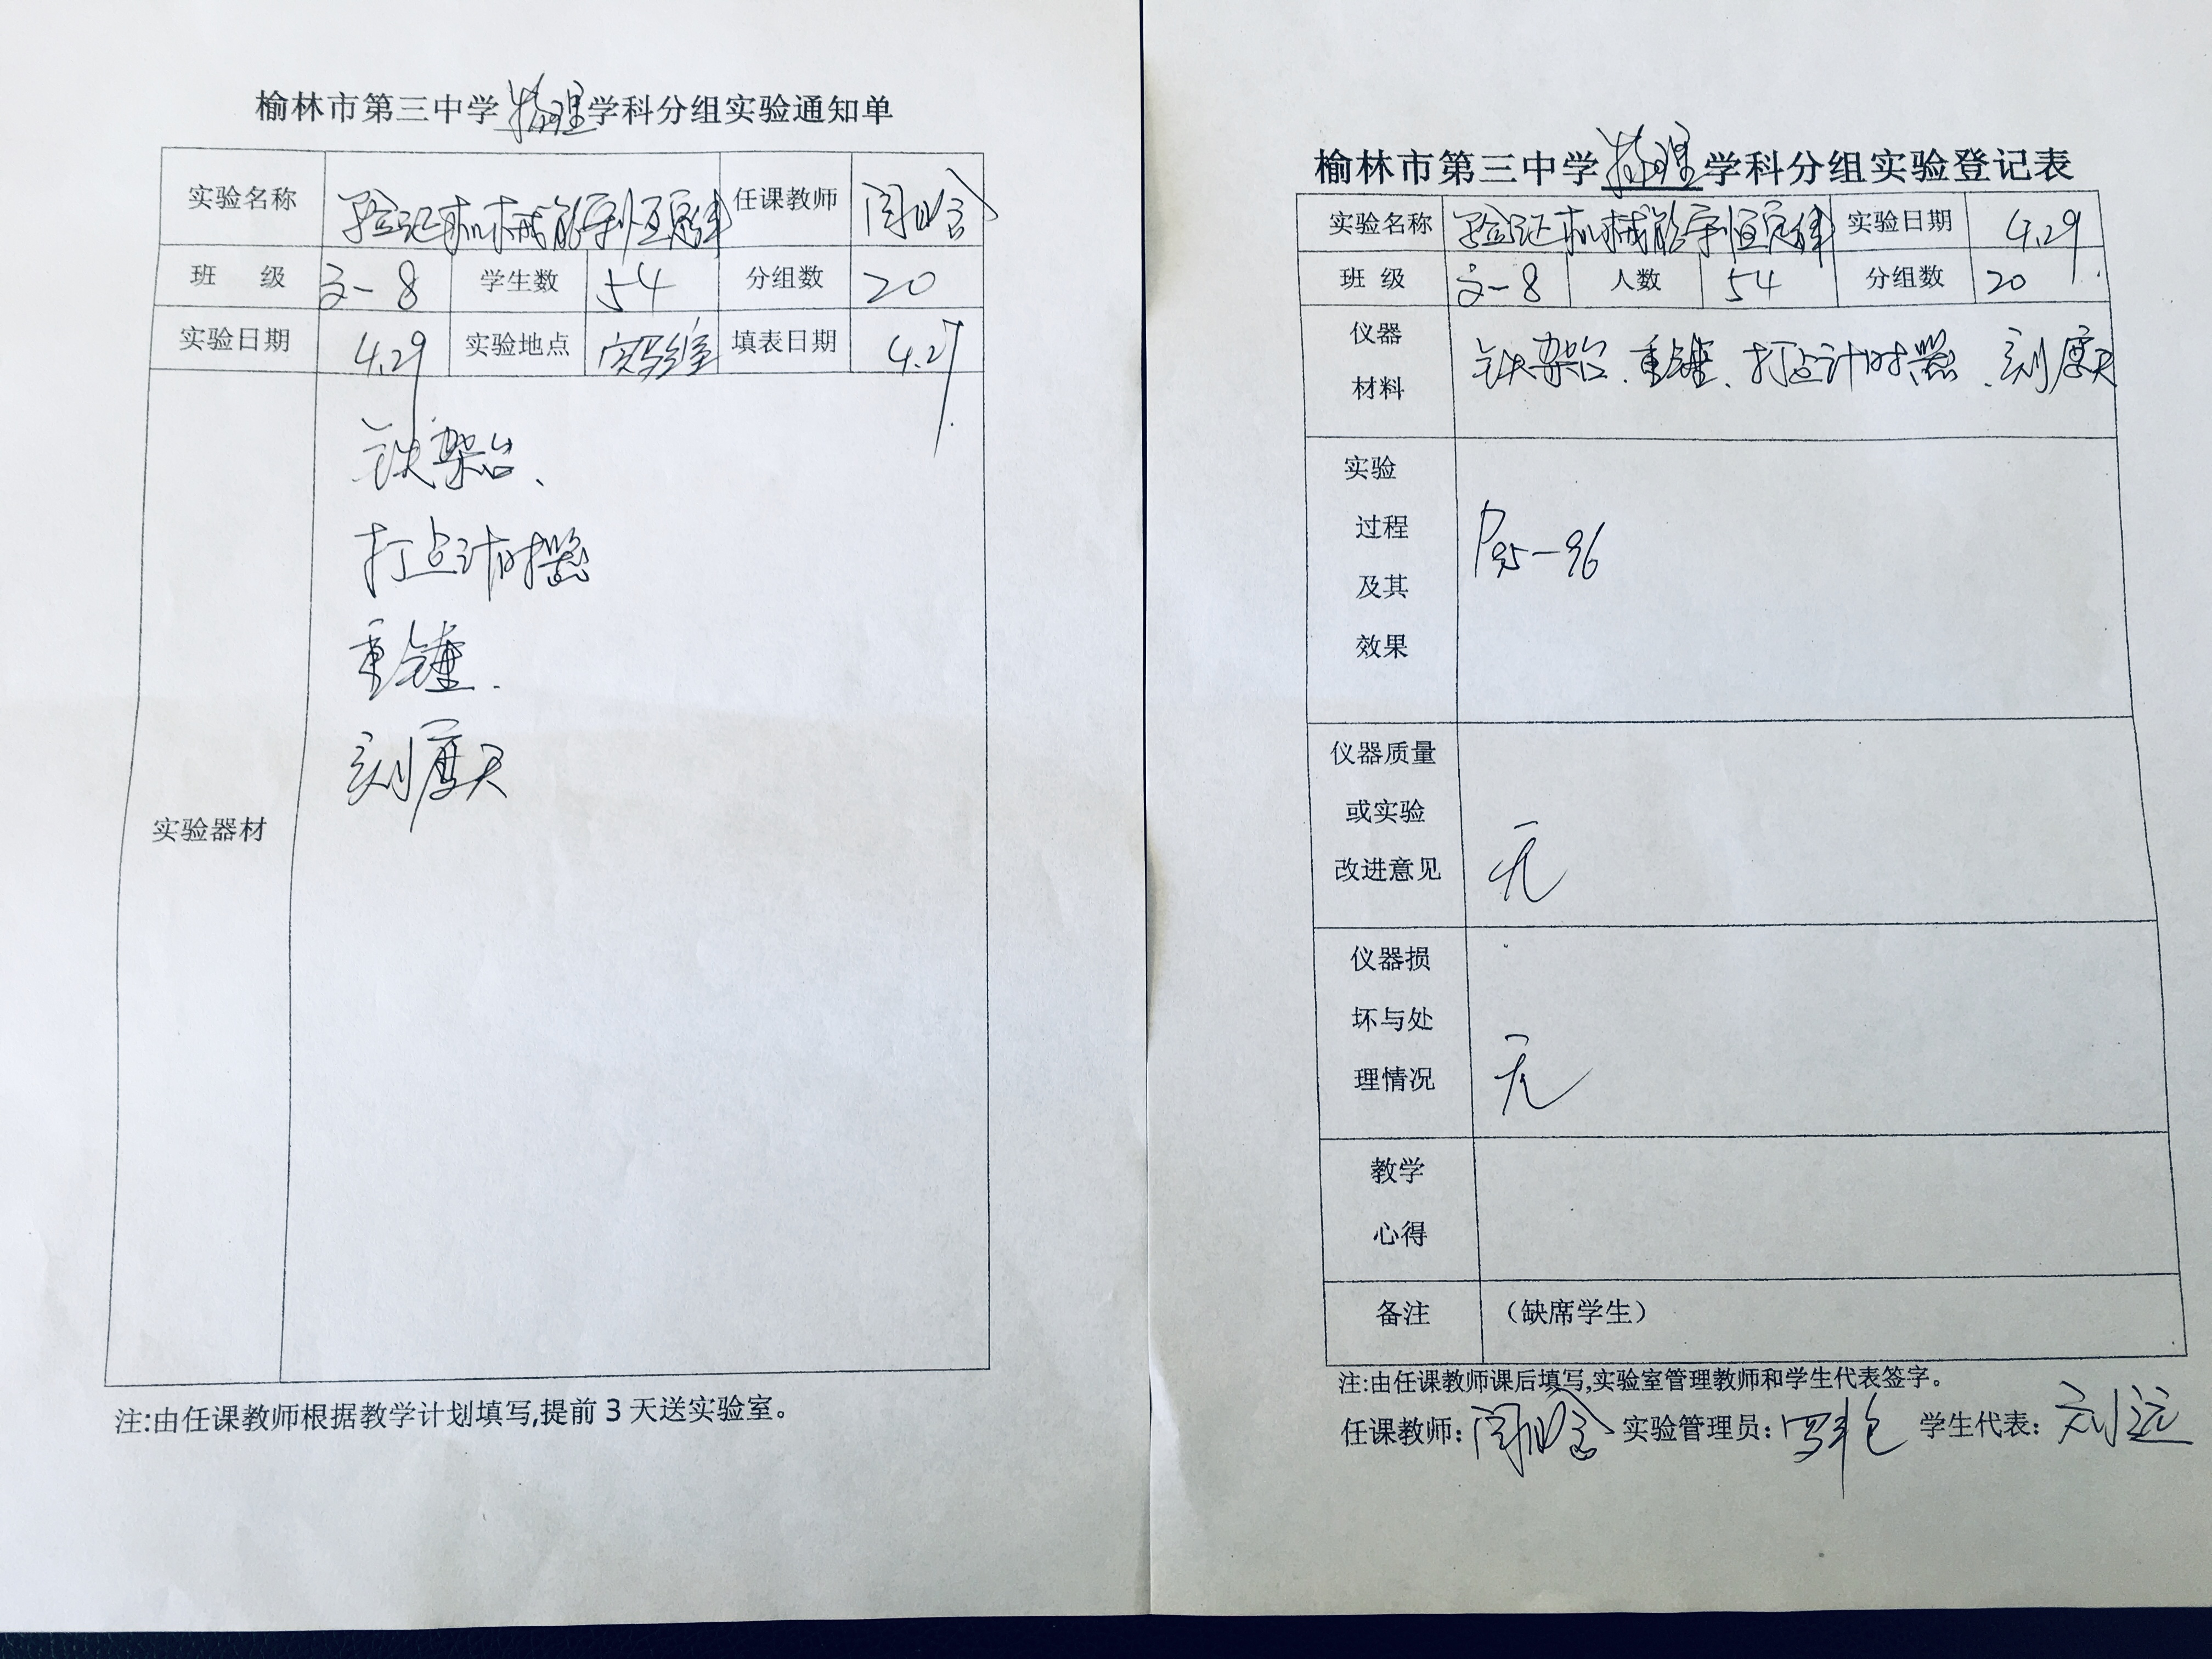 榆林市第三中学物理学科分组实验通知单
实验名称 验证机械能守恒定律 任课教师
班 级 高一8 学生数 54 分组数 20
实验日期 4.29 实验地点 实验室 填表日期 4.27
实验器材
铁架台、
打点计时器
重锤.
刻度尺
注:由任课教师根据教学计划填写,提前3天送实验室。
榆林市第三中学物理学科分组实验登记表
实验名称 验证机械能守恒定律 实验日期 4.29
班 级 高一8 人数 54 分组数 20
仪器
材料
铁架台、重锤、打点计时器、刻度尺
实验
过程
及其
效果
P95-96
仪器质量
或实验
改进意见
无
仪器损
坏与处
理情况
无
教学
心得
备注 （缺席学生）
注:由任课教师课后填写,实验室管理教师和学生代表签字。
任课教师: 实验管理员: 学生代表: 刘远